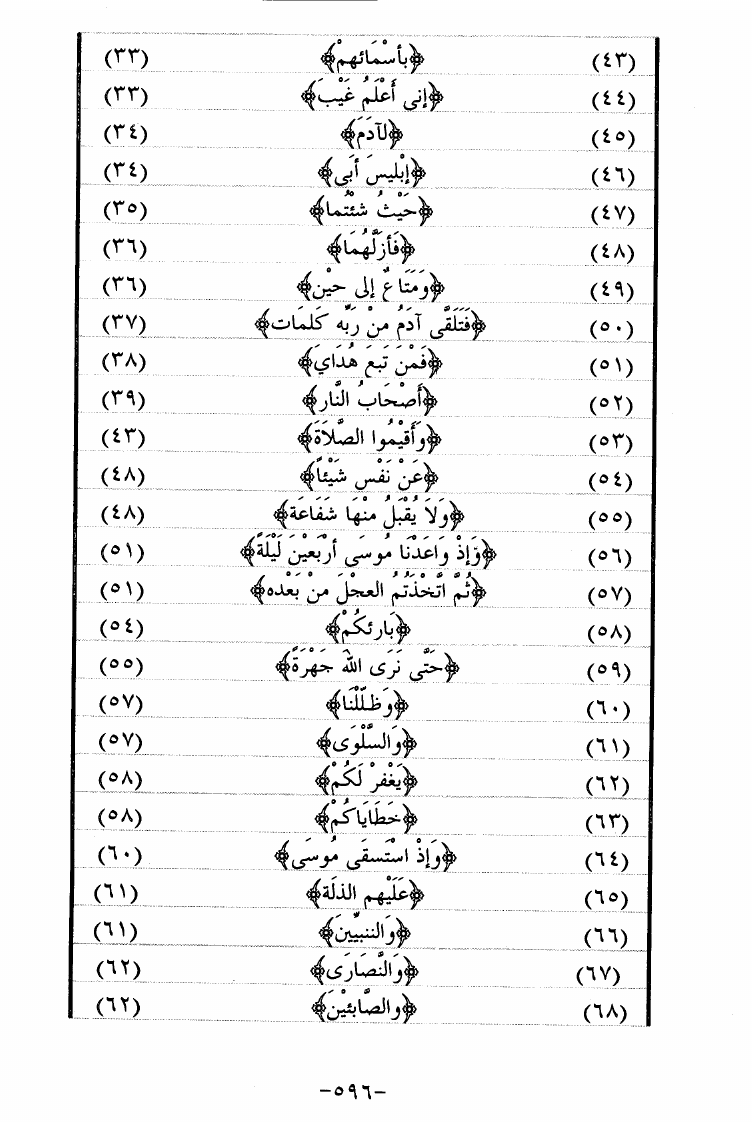 (٤٣) ﴿بأسْمَائهمْ﴾ (٣٣)
(٤٤) ﴿إنى أَعْلَمُ غَيْبَ﴾ (٣٣)
(٤٥) ﴿لآدَمَ﴾ (٣٤)
(٤٦) ﴿إبْليسَ أَبَى﴾ (٣٤)
(٤٧) ﴿حَيْثُ شئْتُما﴾ (٣٥)
(٤٨) ﴿فَأزَلَّهُمَا﴾ (٣٦)
(٤٩) ﴿وَمَتَاعٌ إلى حيْن﴾ (٣٦)
(٥٠) ﴿فَتَلَقَّى آدَمُ منْ رَبِّه كَلمَات﴾ (٣٧)
(٥١) ﴿فَمْنَ تَبعَ هُدَايَ﴾ (٣٨)
(٥٢) ﴿أَصْحَابُ النَّار﴾ (٣٩)
(٥٣) ﴿وَأَقيْمُوا الصَّلاَةَ﴾ (٤٣)
(٥٤) ﴿عَنْ نَفْس شَيْئاً﴾ (٤٨)
(٥٥) ﴿وَلاَ يُقْبَلُ منْهَا شَفَاعَة﴾ (٤٨)
(٥٦) ﴿وَإذْ وَاعَدْنَا مُوسَى أرْبَعيْنَ لَيْلَةً﴾ (٥١)
(٥٧) ﴿ثُمَّ اتَّخْذَتُمُ العجْلَ منْ بَعْده﴾ (٥١)
(٥٨) ﴿بَارئكُمْ﴾ (٥٤)
(٥٩) ﴿حَتَّى نَرَى اللهَ جَهْرَةً﴾ (٥٥)
(٦٠) ﴿وَظلَّلْنَا﴾ (٥٧)
(٦١) ﴿وَالسَّلْوَى﴾ (٥٧)
(٦٢) ﴿يَغْفرْ لَكُمْ﴾ (٥٨)
(٦٣) ﴿خَطَايَاكُمْ﴾ (٥٨)
(٦٤) ﴿وَإذْ اسْتَسقَى مُوسَى﴾ (٦٠)
(٦٥) ﴿عَلَيْهم الذلَة﴾ (٦١)
(٦٦) ﴿وَالننبيِّينَ﴾ (٦١)
(٦٧) ﴿وَالنَّصَارَى﴾ (٦٢)
(٦٨) ﴿والصَّابئيْنَ﴾ (٦٢)
-٥٩٦-